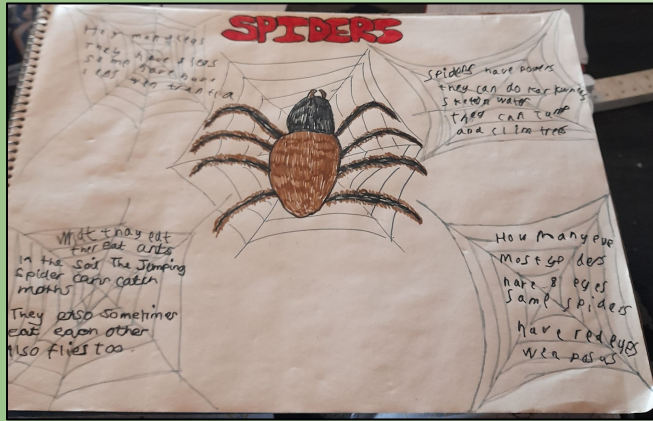 SPIDERS
How many legs
They have 8 legs
some have have
legs
Spiders have powers
they can do
on water
they can
and clim trees
What thay eat
ther eat ants
in the soil The Jamping
Spider cann catch
moths
They also sometimes
eat eachon other
Also flies too
How many eye
Most sp ders
have 8 eyes
Same spiders
have red eyes